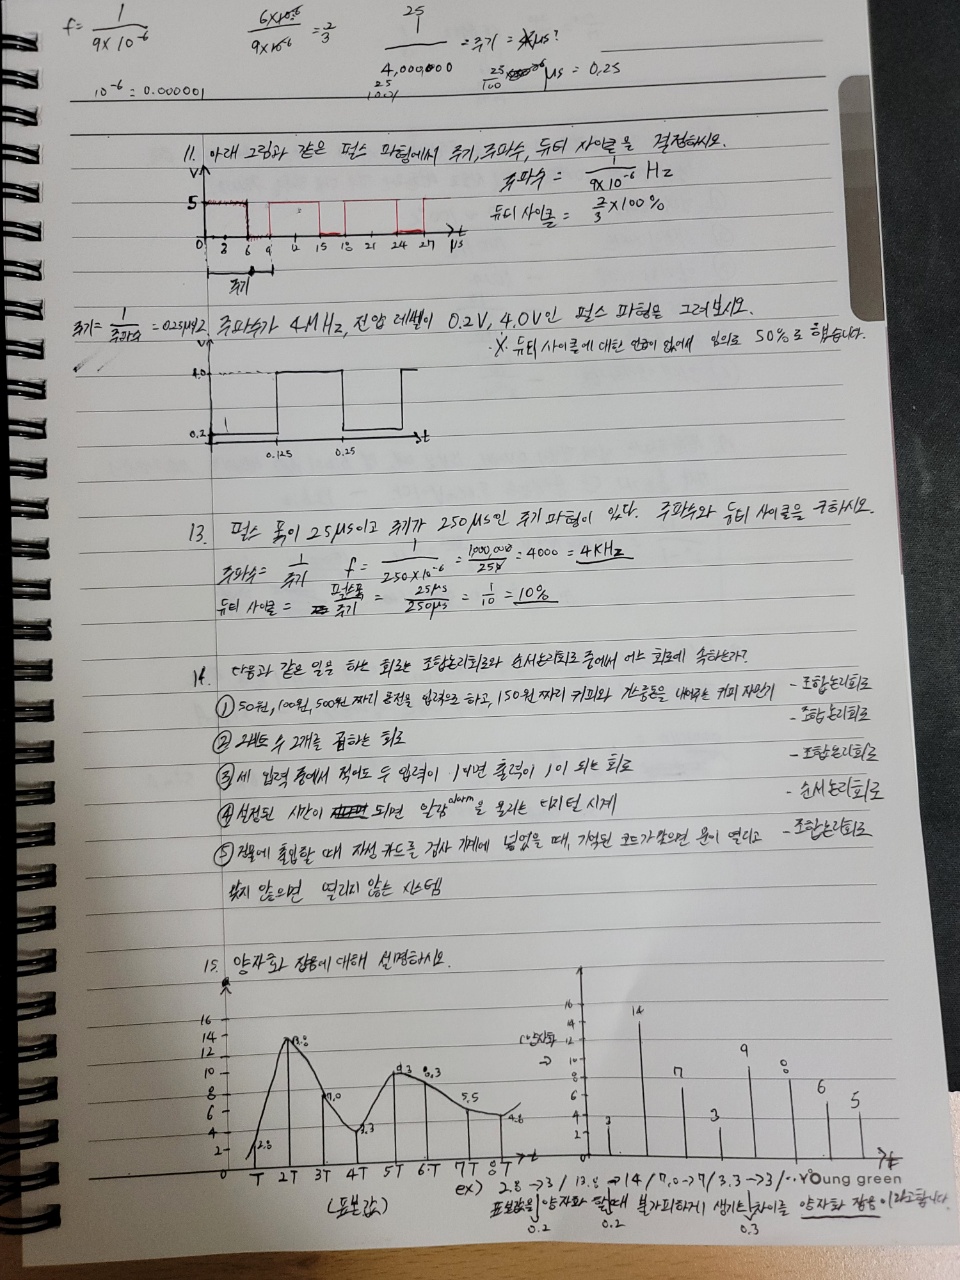 f= 1 / 9×10⁻⁶
6×10⁻⁶ / 9×10⁻⁶ = 2/3
1 / 4,000,000 = 주기 = μs?
25/100 μs = 0.25
10⁻⁶ = 0.000001
11. 아래 그림과 같은 펄스 파형에서 주기, 주파수, 듀티 사이클을 결정하시오.
주파수 = 1 / 9×10⁻⁶ Hz
듀티 사이클 = 2/3 ×100%
V
5
0 3 6 9 12 15 18 21 24 27 t μs
주기
주기= 1/주파수 = 0.25μs
12. 주파수가 4MHz, 전압 레벨이 0.2V, 4.0V인 펄스 파형을 그려보시오.
※ 듀티 사이클에 대한 언급이 없어서 임의로 50%로 하였습니다.
V
4.0
0.2
0.125 0.25 t
13. 펄스 폭이 25μs이고 주기가 250μs인 주기 파형이 있다. 주파수와 듀티 사이클을 구하시오.
주파수= 1/주기 f= 1 / 250×10⁻⁶ = 1,000,000 / 250 = 4000 = 4KHz
듀티 사이클 = 펄스폭/주기 = 25μs / 250μs = 1/10 = 10%
14. 다음과 같은 일을 하는 회로는 조합논리회로와 순서논리회로 중에서 어느 회로에 속하는가?
① 50원, 100원, 500원 짜리 동전을 입력으로 하고, 150원 짜리 커피와 거스름돈을 내어주는 커피 자판기 - 조합논리회로
② 2비트 수 2개를 곱하는 회로 - 조합논리회로
③ 세 입력 중에서 적어도 두 입력이 1이면 출력이 1이 되는 회로 - 조합논리회로
④ 설정된 시간이 되면 알람alarm을 울리는 디지털 시계 - 순서논리회로
⑤ 건물에 출입할 때 자성 카드를 검사 기계에 넣었을 때, 기억된 코드가 맞으면 문이 열리고 - 조합논리회로
맞지 않으면 열리지 않는 시스템
15. 양자화 잡음에 대해 설명하시오.
16
14
12
10
8
6
4
2
0
2.8 13.8 7.0 3.3 9.3 8.3 5.5 4.6
T 2T 3T 4T 5T 6T 7T 8T t
(표본값)
(양자화)
⇒
16
14
12
10
8
6
4
2
3 14 7 3 9 8 6 5
t
ex) 2.8→3 / 13.8→14 / 7.0→7 / 3.3→3 / ...
Young green
표본값을 양자화 할 때 불가피하게 생기는 차이를 양자화 잡음이라고 합니다.
0.2 0.2 0.3